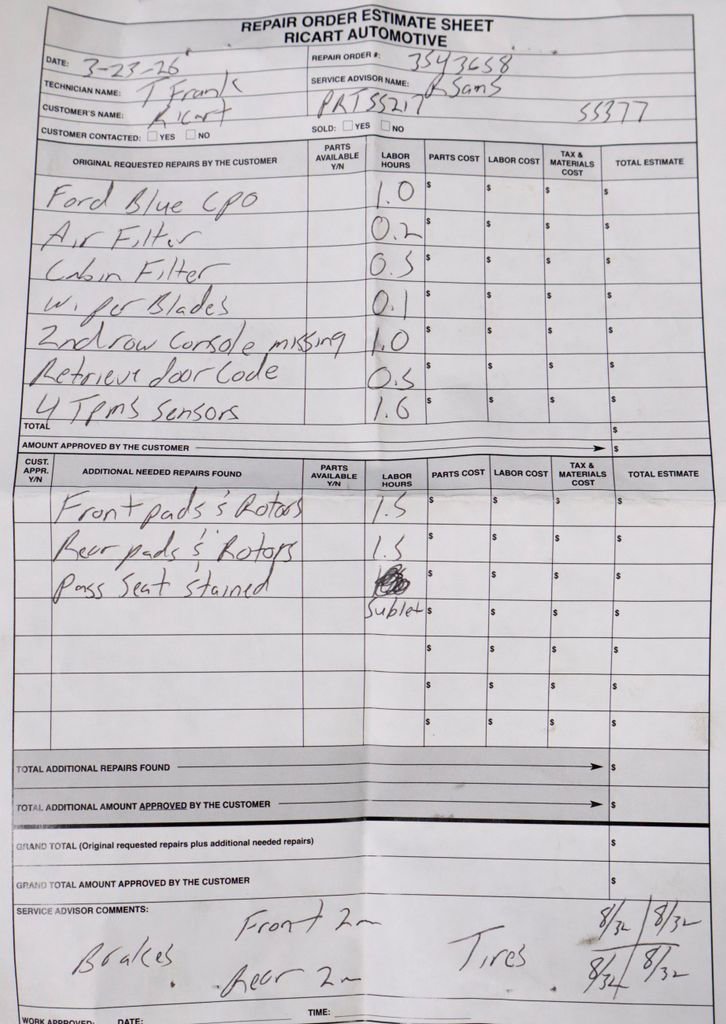 REPAIR ORDER ESTIMATE SHEET
RICART AUTOMOTIVE
DATE: 3-23-26 REPAIR ORDER #: 3543658
TECHNICIAN NAME: T Frank SERVICE ADVISOR NAME: R Sams
CUSTOMER'S NAME: Ricart PRT55217 55377
CUSTOMER CONTACTED: YES NO SOLD: YES NO
ORIGINAL REQUESTED REPAIRS BY THE CUSTOMER PARTS AVAILABLE Y/N LABOR HOURS PARTS COST LABOR COST TAX & MATERIALS COST TOTAL ESTIMATE
Ford Blue CPO 1.0 $ $ $ $
Air Filter 0.2 $ $ $ $
Cabin Filter 0.5 $ $ $ $
Wiper Blades 0.1 $ $ $ $
2nd row Console missing 1.0 $ $ $ $
Retrieve door Code 0.5 $ $ $ $
4 TPMS Sensors 1.6 $ $ $ $
TOTAL $
AMOUNT APPROVED BY THE CUSTOMER $
CUST. APPR. Y/N ADDITIONAL NEEDED REPAIRS FOUND PARTS AVAILABLE Y/N LABOR HOURS PARTS COST LABOR COST TAX & MATERIALS COST TOTAL ESTIMATE
Front pads & Rotors 1.5 $ $ $ $
Rear pads & Rotors 1.5 $ $ $ $
Pass Seat Stained $ $ $ $
Sublet $ $ $ $
$ $ $ $
$ $ $ $
$ $ $ $
TOTAL ADDITIONAL REPAIRS FOUND $
TOTAL ADDITIONAL AMOUNT APPROVED BY THE CUSTOMER $
GRAND TOTAL (Original requested repairs plus additional needed repairs) $
GRAND TOTAL AMOUNT APPROVED BY THE CUSTOMER $
SERVICE ADVISOR COMMENTS:
Brakes Front 2m Tires 8/32 8/32
Rear 2m 8/32 8/32
WORK APPROVED: DATE: TIME: